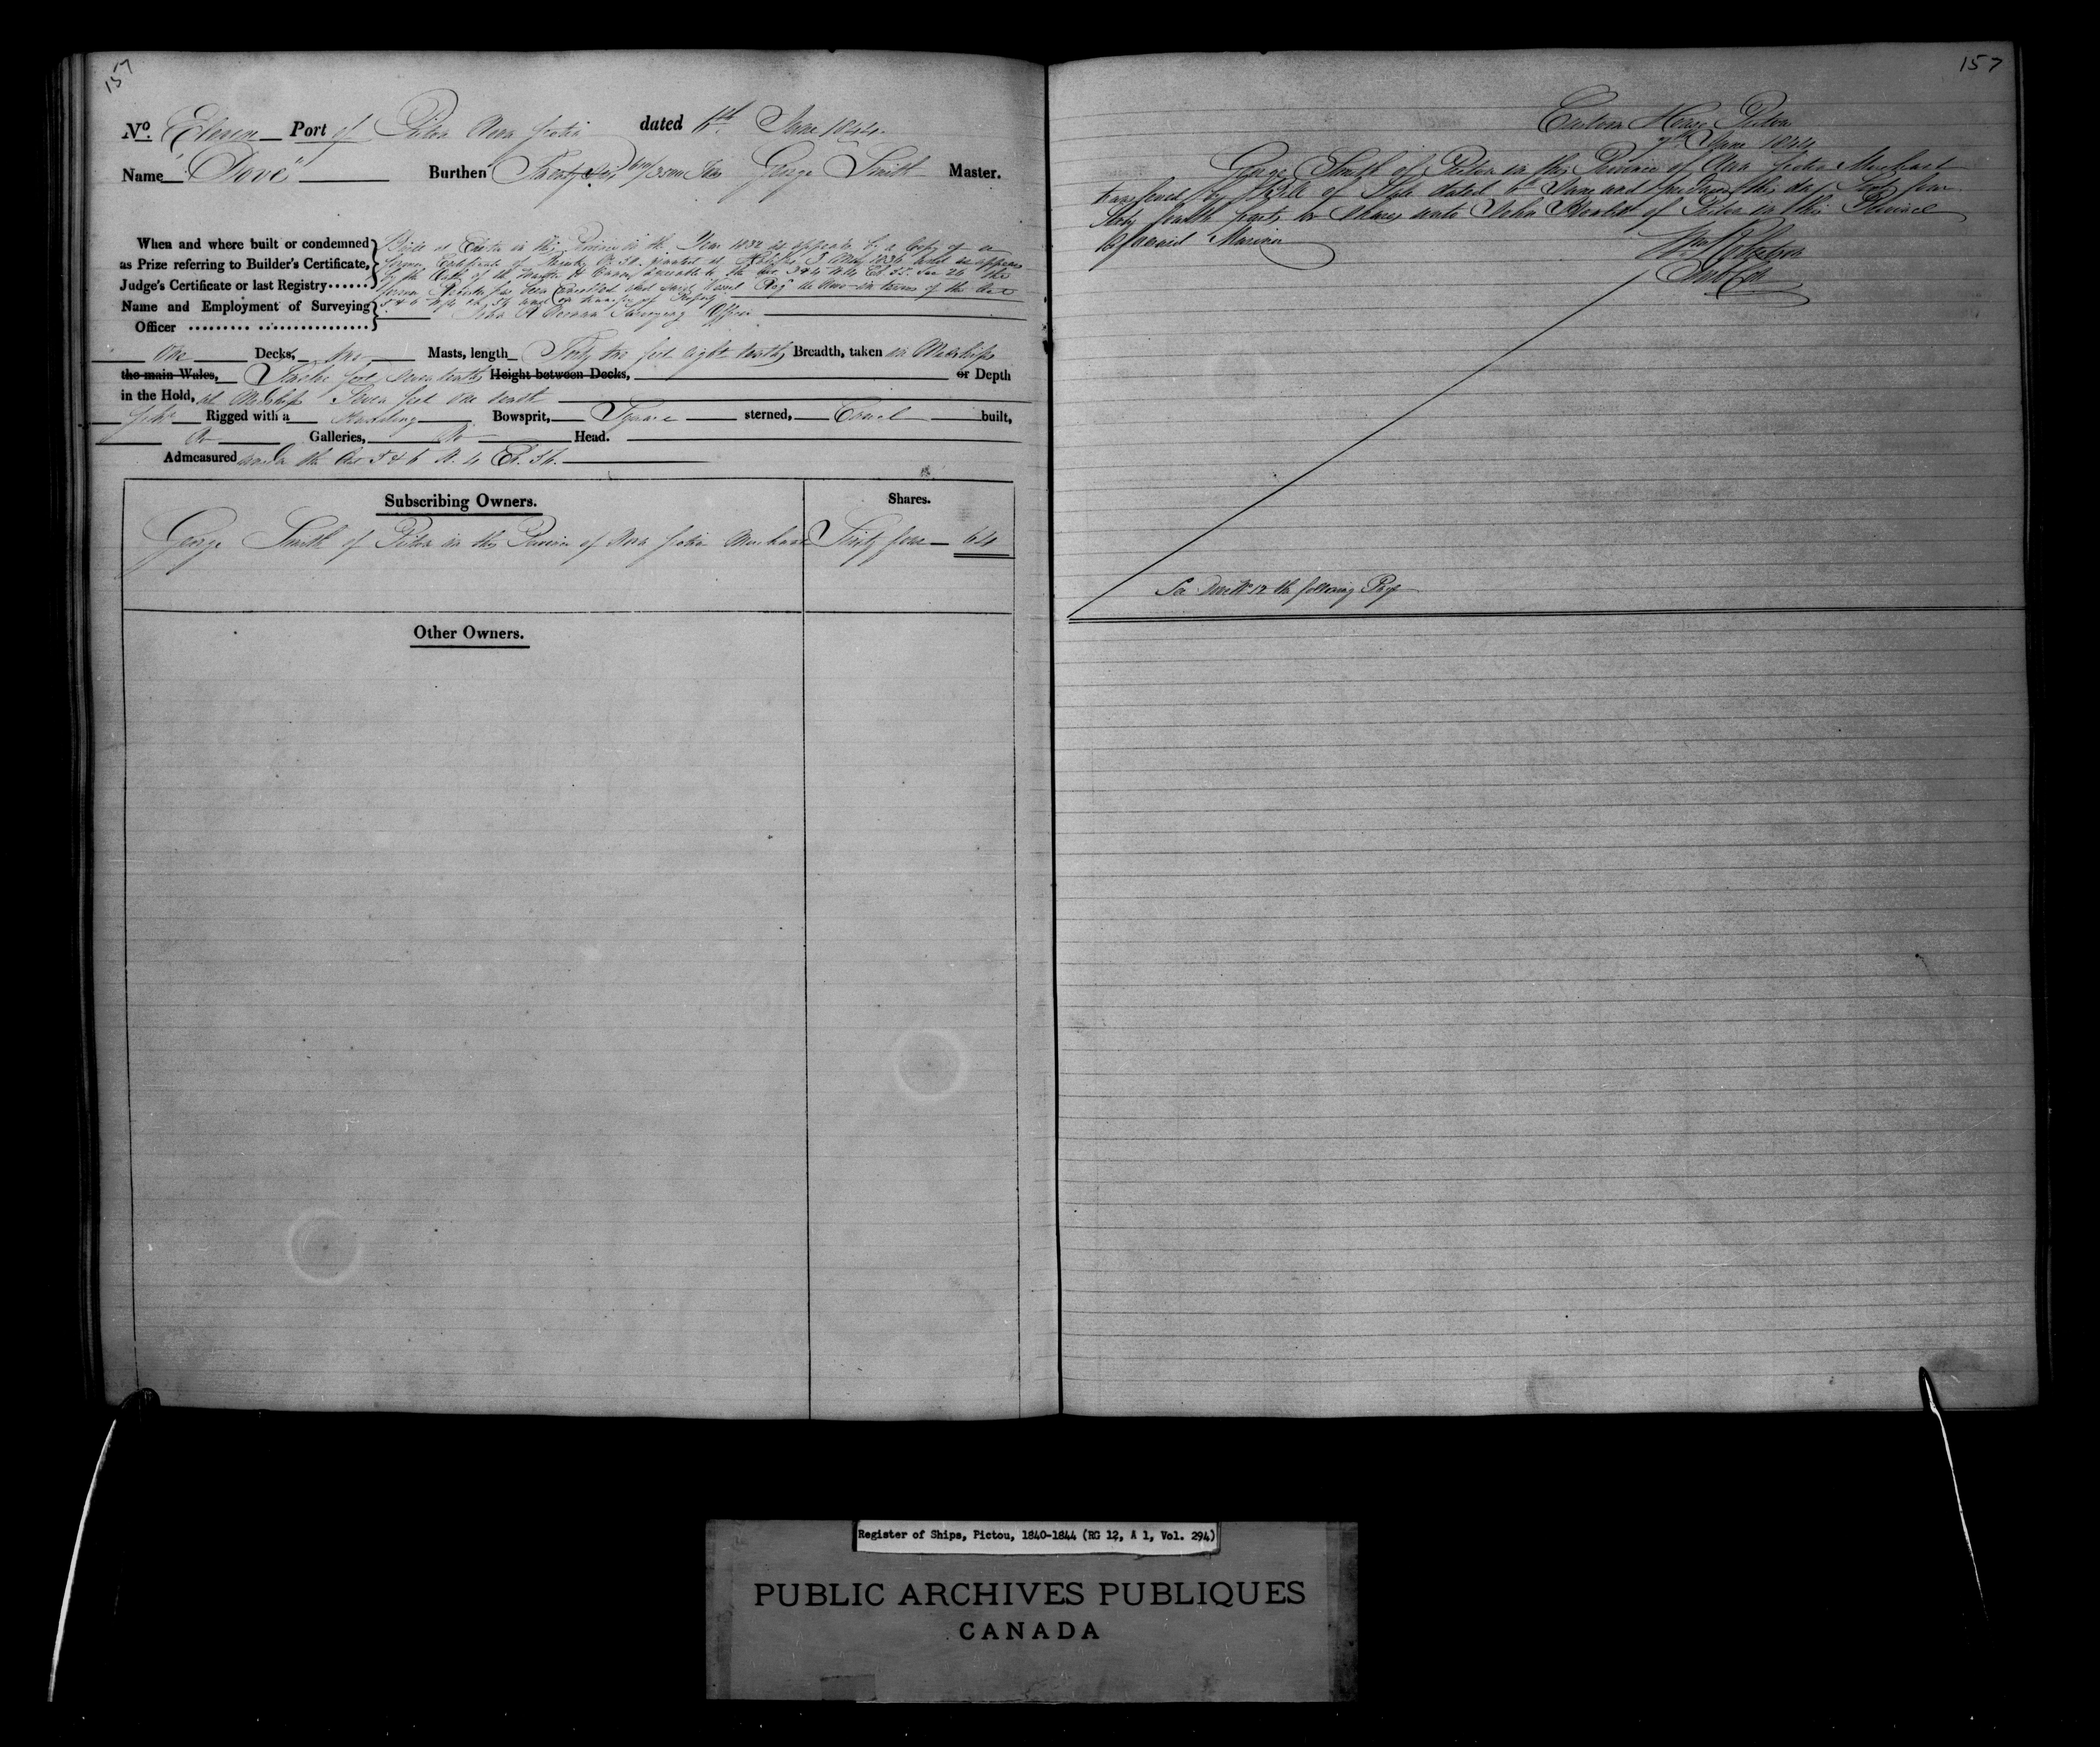 157
No. Eleven Port of Pictou Nova Scotia dated 6th June 1844.
Name "Dove" Burthen Twenty Tons George Smith Master.
When and where built or condemned
as Prize referring to Builder's Certificate,
Judge's Certificate or last Registry
Name and Employment of Surveying
Officer
Built at in this Province in the Year 1832 as appears by a Copy of a
former Certificate of Registry No. granted at Halifax 3 May 1836
by the Oath of the
former Register has been Cancelled and said Vessel Reg de Novo in terms of the Act
5 & 6 W 4 and on transfer of Property
John Surveying Officer
One Decks, Two Masts, length Forty two feet eight tenths Breadth, taken in Midships
the main Wales, Twelve feet seven tenths Height between Decks, or Depth
in the Hold, at Midships Seven feet One tenth
Rigged with a Standing Bowsprit, Square sterned, Carvel built,
No Galleries, No Head.
Admeasured under the Act 5 & 6 W. 4 C. 56.
Subscribing Owners. Shares.
George Smith of Pictou in the Province of Nova Scotia Merchant Sixty four 64
Other Owners.
157
Custom House Pictou
7th June 1844
George Smith of Pictou in the Province of Nova Scotia Merchant
transferred by Bill of Sale dated 6th June and this day Sixty four
Sixty fourth parts or Shares unto John of Pictou in the Province
aforesaid Mariner
See Dove No. 12 the following Page
Register of Ships, Pictou, 1840-1844 (RG 12, A 1, Vol. 294)
PUBLIC ARCHIVES PUBLIQUES
CANADA